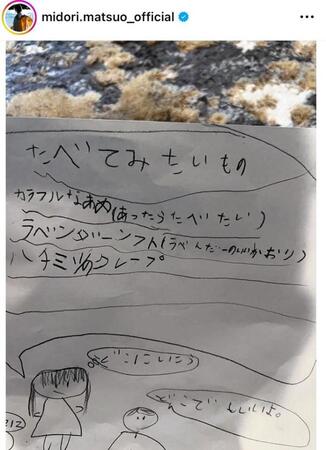 midori.matsuo_official
たべてみたいもの
カラフルなあめ(あったらたべたい)
ラベンダーソフト(ラベんだーのいいかおり)
ハチミツクレープ
どこにいこう
どこでもいいよ。